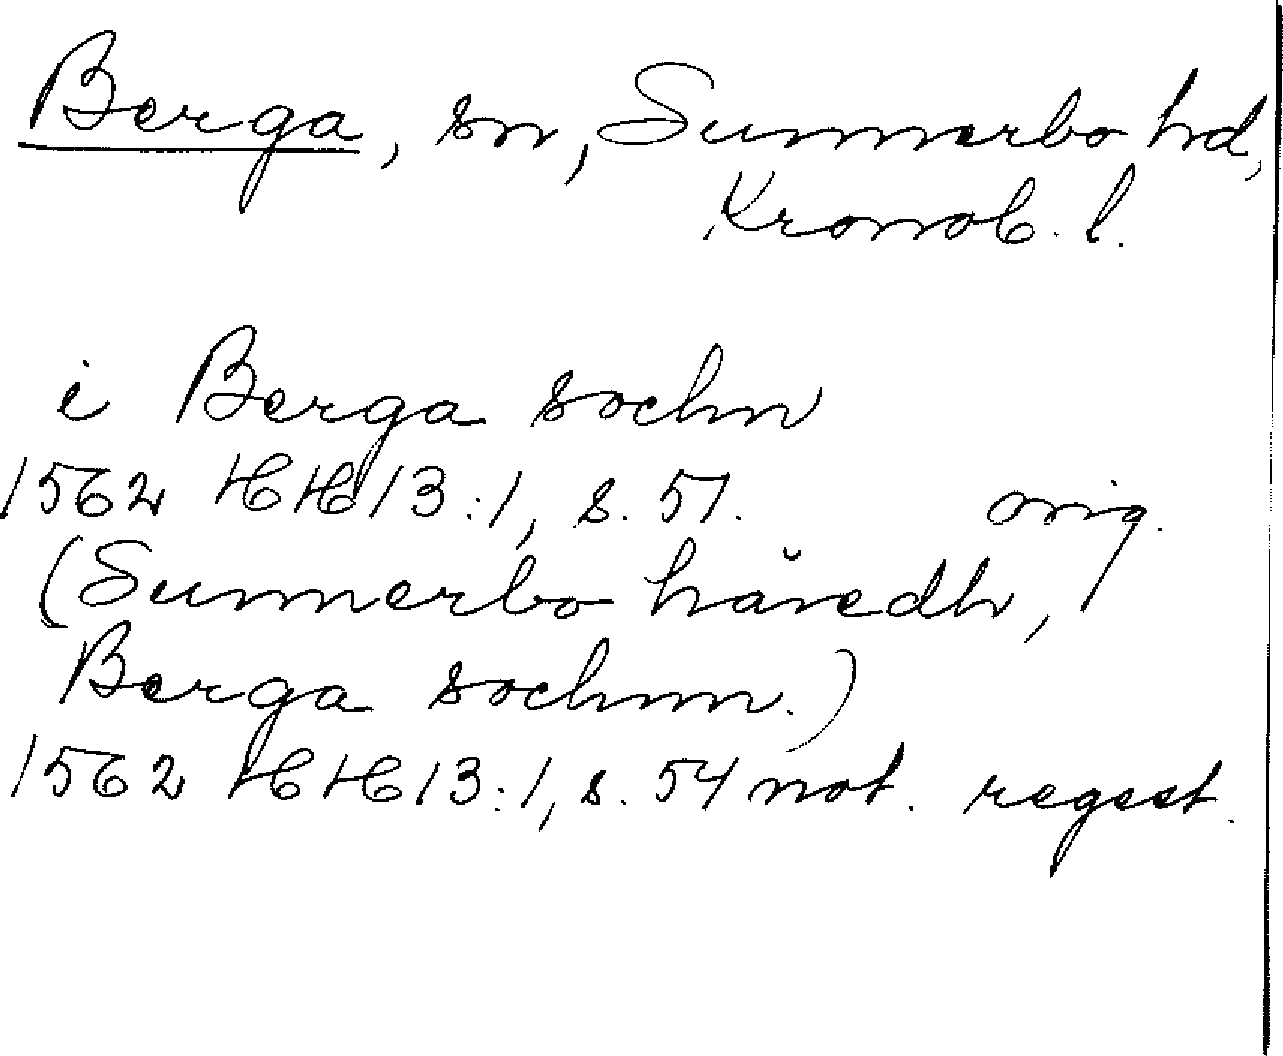 Berga, sn, Sunnerbo hd,
Kronob. l.
i Berga sochn
1562 HH 13:1, s. 51. orig.
(Sunnerbo häredh,
Berga sochnn.)
1562 HH 13:1, s. 54 not. regest.